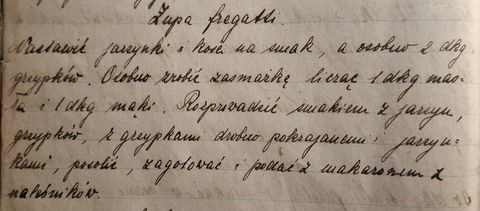 Zupa fregatti.
Nastawić jarzynki i kość na smak, a osobno 2 dkg
grzypków. Osobno zrobić zasmażkę licząc 1 dkg mas-
ła i 1 dkg mąki. Rozprowadzić smakiem z jarzyn,
grzypków, z grzypkami drobno pokrajanemi i jarzyn-
kami, posolić, zagotować i podać z makaronem z
naleśników.